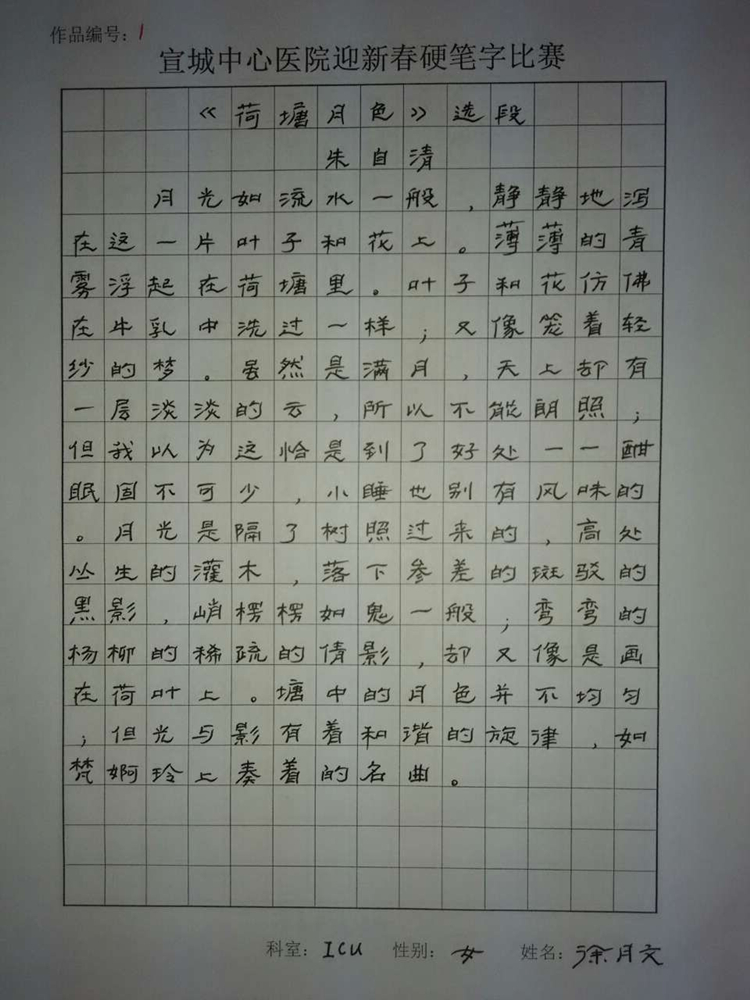 作品编号：1
宣城中心医院迎新春硬笔字比赛
《荷塘月色》选段
朱自清
月光如流水一般，静静地泻
在这一片叶子和花上。薄薄的青
雾浮起在荷塘里。叶子和花仿佛
在牛乳中洗过一样；又像笼着轻
纱的梦。虽然是满月，天上却有
一层淡淡的云，所以不能朗照；
但我以为这恰是到了好处一一酣
眠固不可少，小睡也别有风味的
。月光是隔了树照过来的，高处
丛生的灌木，落下参差的斑驳的
黑影，峭楞楞如鬼一般；弯弯的
杨柳的稀疏的倩影，却又像是画
在荷叶上。塘中的月色并不均匀
；但光与影有着和谐的旋律，如
梵婀玲上奏着的名曲。
科室：ICU 性别：女 姓名：徐月文